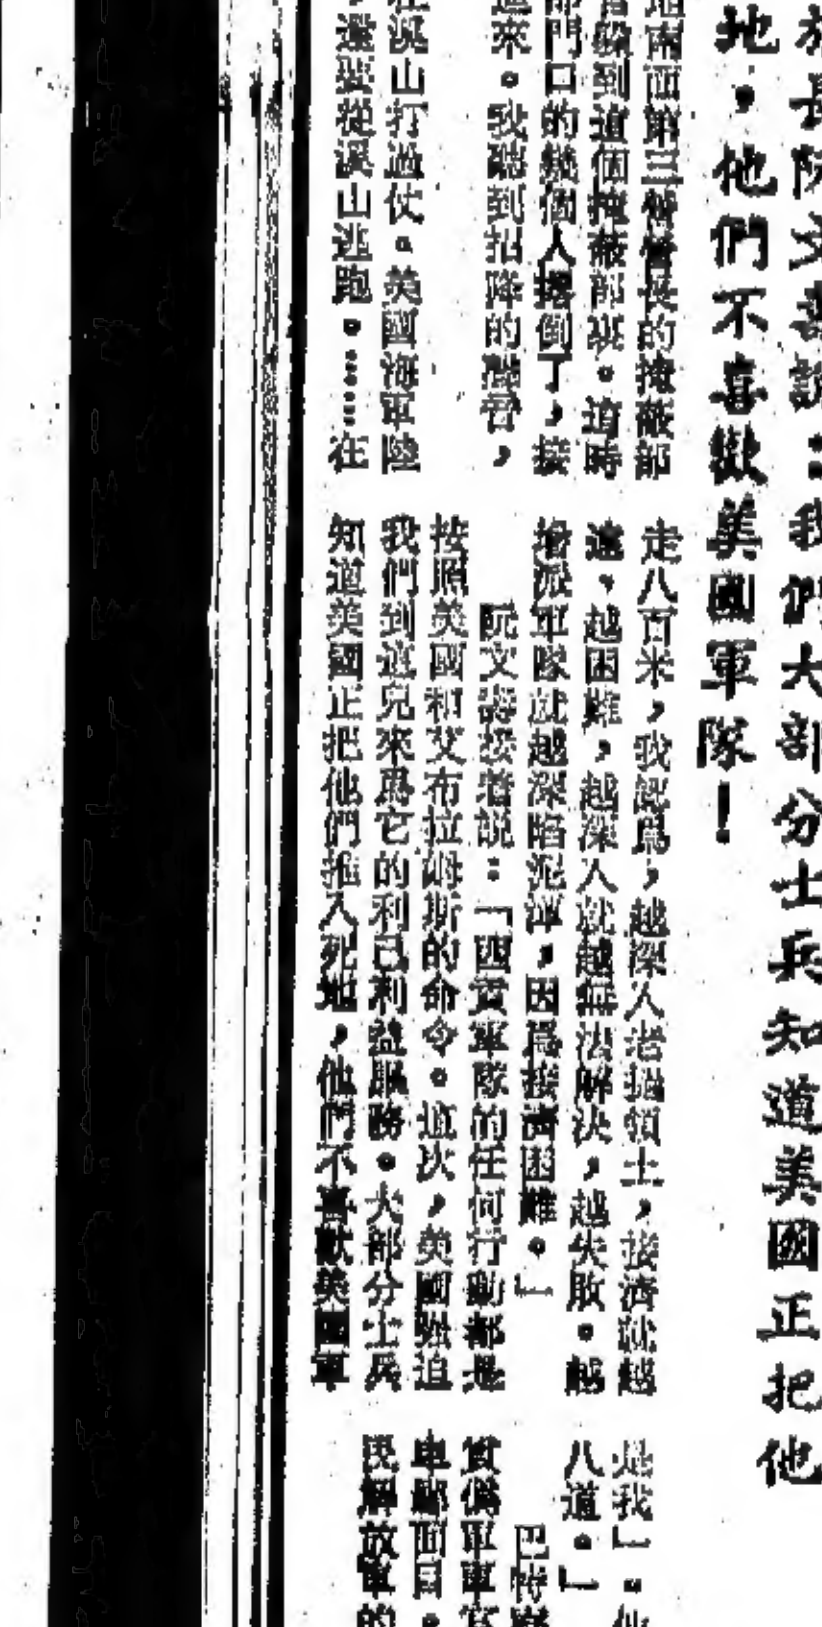 長阮文壽說：我們大部分士兵知道美國正把他
地，他們不喜歡美國軍隊！
面第三營營長的掩蔽部
躲到這個掩蔽部裏。這時
門口的幾個人摞倒了，接
來。我聽到招降的聲音，
溪山打過仗。美國海軍陸
還要從溪山逃跑。……在
走八百米，我認爲，越深入老撾領土，接濟就越
遠，越困難，越深入就越無法解決，越失敗。越
增派軍隊就越深陷泥潭，因爲接濟困難。」
阮文壽接着說：「西貢軍隊的任何行動都是
按照美國和艾布拉姆斯的命令。這次，美國強迫
我們到這兒來爲它的利己利益服務。大部分士兵
知道美國正把他們推入死地，他們不喜歡美國軍
是我」。他
八道。」
巴特
貢僞軍軍官
卑鄙面目。
民解放軍的